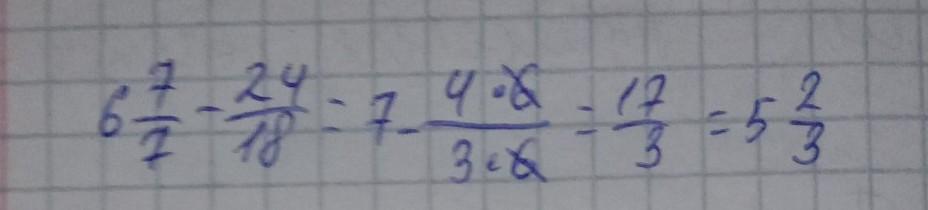 6 7/7 - 24/18 = 7 - 4·6/3·6 = 17/3 = 5 2/3